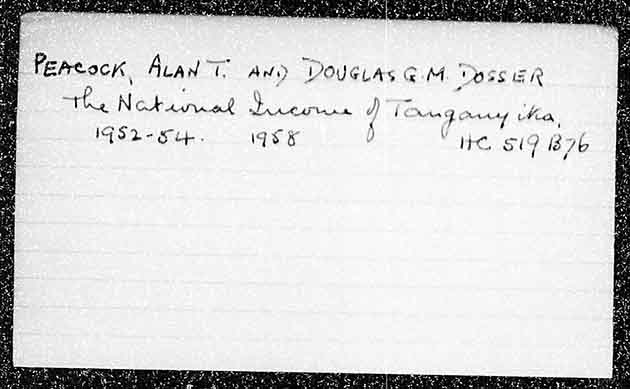 PEACOCK, ALAN T. AND DOUGLAS G.M. DOSSER
The National Income of Tanganyika,
1952-54. 1958 HC 519 B76